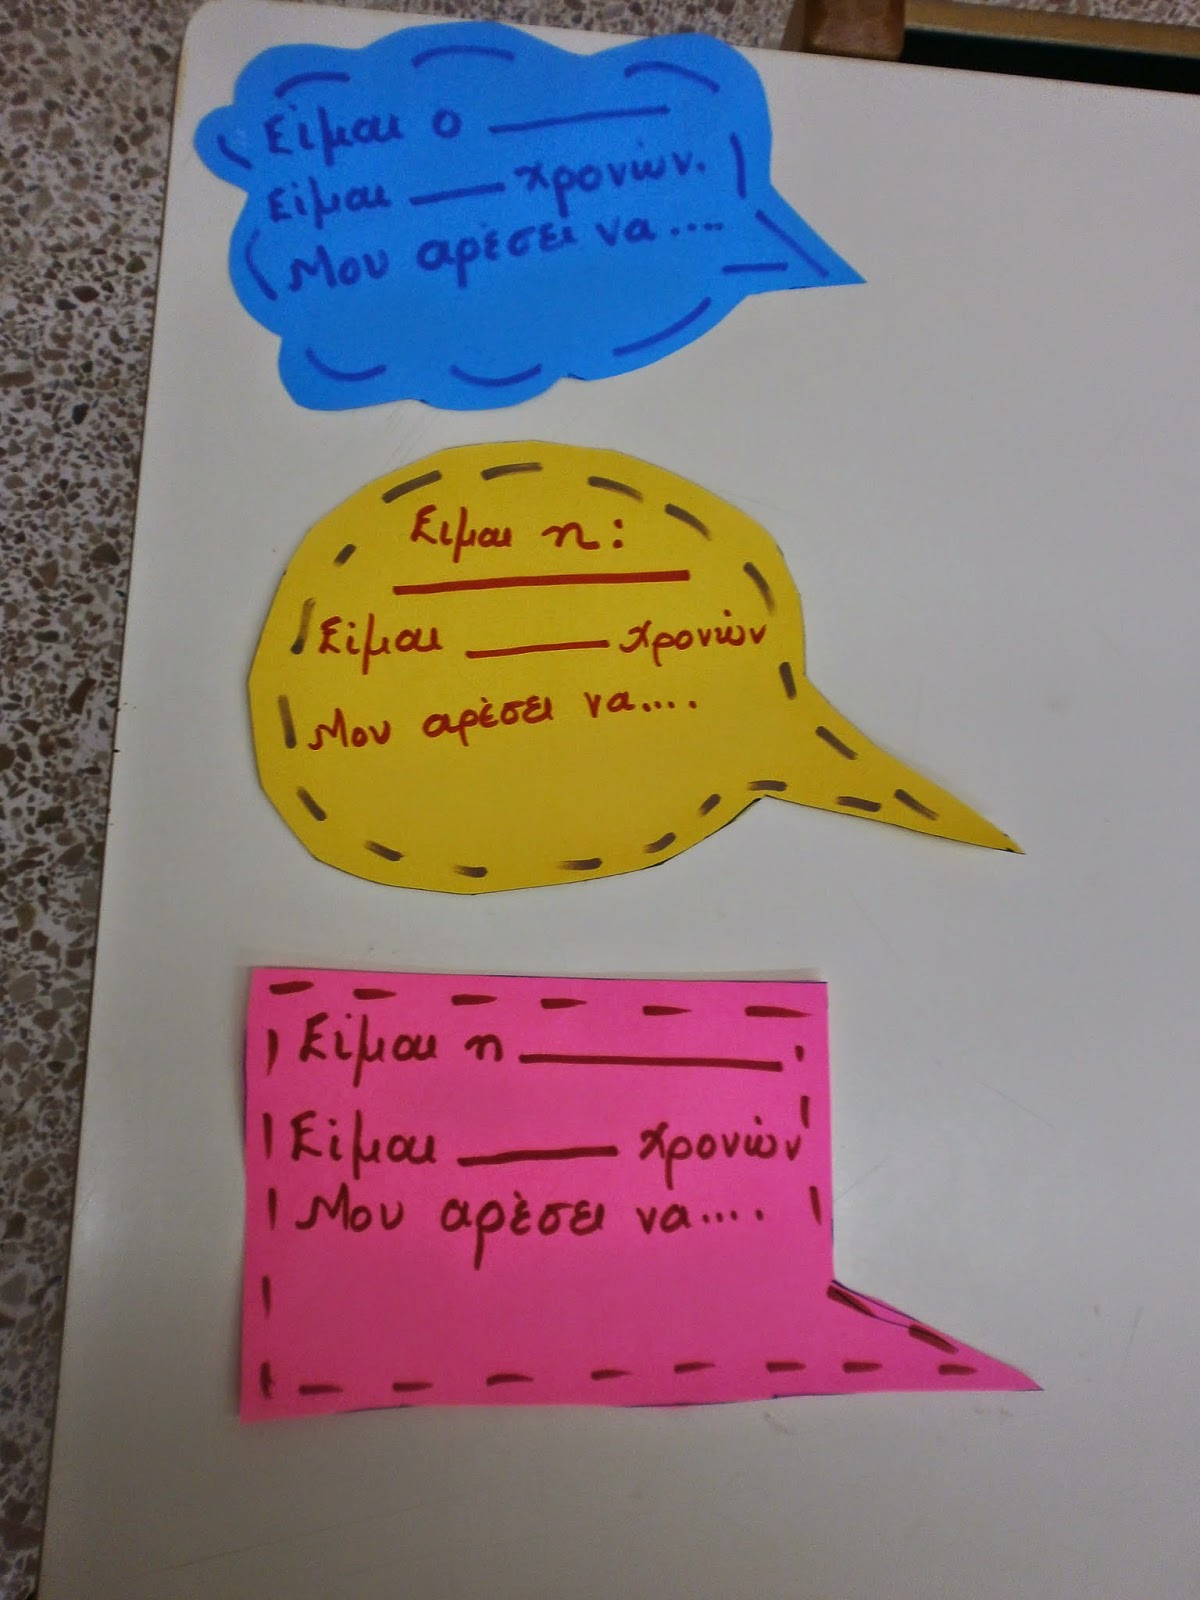 Είμαι ο ______
Είμαι ____ χρονών.
Μου αρέσει να.....
Είμαι η:
______
Είμαι ____ χρονών
Μου αρέσει να....
Είμαι η ______
Είμαι ____ χρονών
Μου αρέσει να....